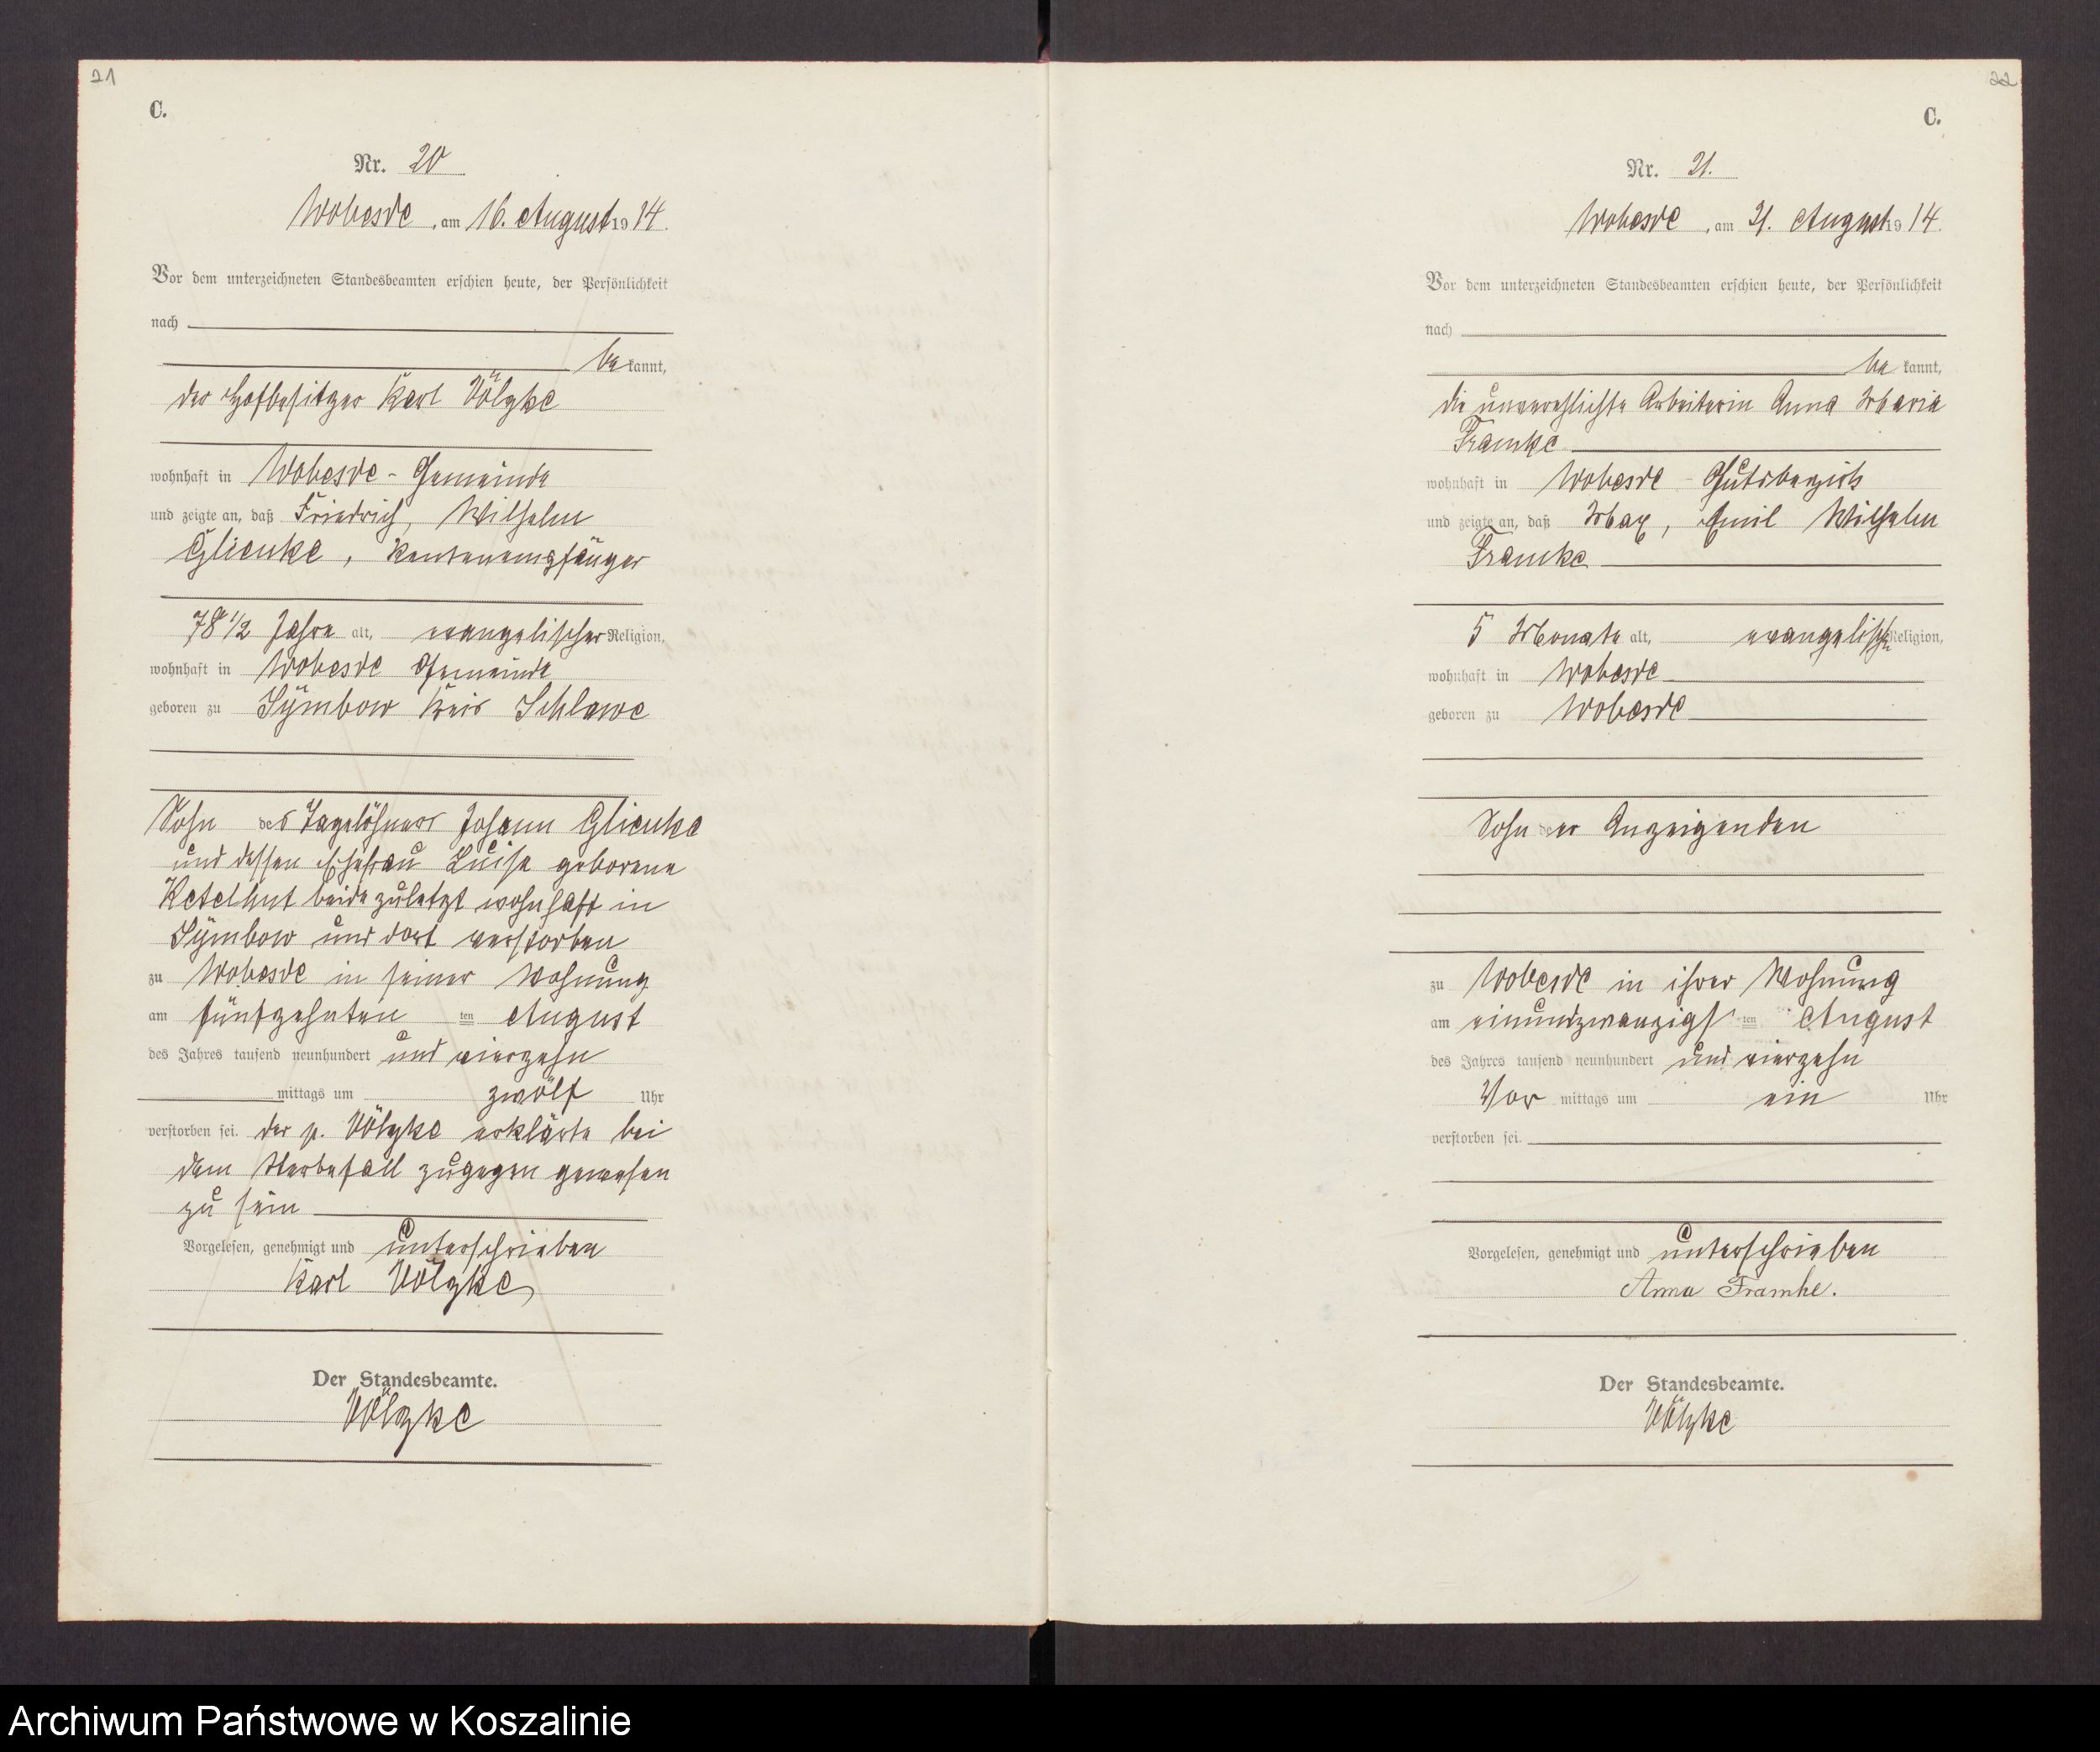 21
C.
Nr. 20
Wobesde, am 16. August 1914.
Vor dem unterzeichneten Standesbeamten erschien heute, der Persönlichkeit
nach
bekannt,
der Hofbesitzer Karl Völzke
wohnhaft in Wobesde - Gemeinde
und zeigte an, daß Friedrich, Wilhelm
Glienke, Rentenempfänger
78 1/2 Jahre alt, evangelischer Religion,
wohnhaft in Wobesde Gemeinde
geboren zu Symbow Kreis Schlawe
Sohn des Tagelöhners Johann Glienke
und dessen Ehefrau Luise geborene
Ketelhut beide zuletzt wohnhaft in
Symbow und dort verstorben
zu Wobesde in seiner Wohnung
am fünfzehnten ten August
des Jahres tausend neunhundert und vierzehn
mittags um zwölf Uhr
verstorben sei. der p. Völzke erklärte bei
dem Sterbefall zugegen gewesen
zu sein
Vorgelesen, genehmigt und unterschrieben
Karl Völzke
Der Standesbeamte.
Völzke
22
C.
Nr. 21.
Wobesde, am 21. August 1914.
Vor dem unterzeichneten Standesbeamten erschien heute, der Persönlichkeit
nach
bekannt,
die unverehlichte Arbeiterin Anna Maria
Framke
wohnhaft in Wobesde - Gutsbezirk
und zeigte an, daß Max, Emil Wilhelm
Framke
5 Monate alt, evangelischer Religion,
wohnhaft in Wobesde
geboren zu Wobesde
Sohn der Anzeigenden
zu Wobesde in ihrer Wohnung
am einundzwanzigsten August
des Jahres tausend neunhundert und vierzehn
Vor mittags um ein Uhr
verstorben sei.
Vorgelesen, genehmigt und unterschrieben
Anna Framke.
Der Standesbeamte.
Völzke
Archiwum Państwowe w Koszalinie